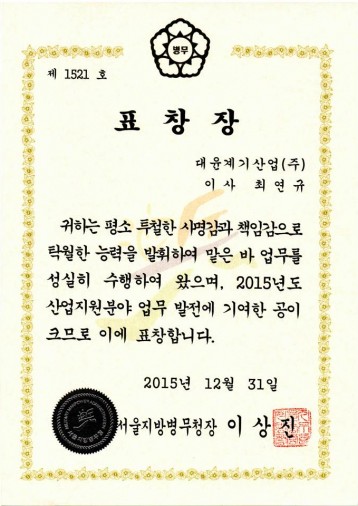 병무
제 1521 호
표 창 장
대윤계기산업(주)
이 사 최 연 규
귀하는 평소 투철한 사명감과 책임감으로
탁월한 능력을 발휘하여 맡은 바 업무를
성실히 수행하여 왔으며, 2015년도
산업지원분야 업무 발전에 기여한 공이
크므로 이에 표창합니다.
2015년 12월 31일
서울지방병무청장 이 상 진